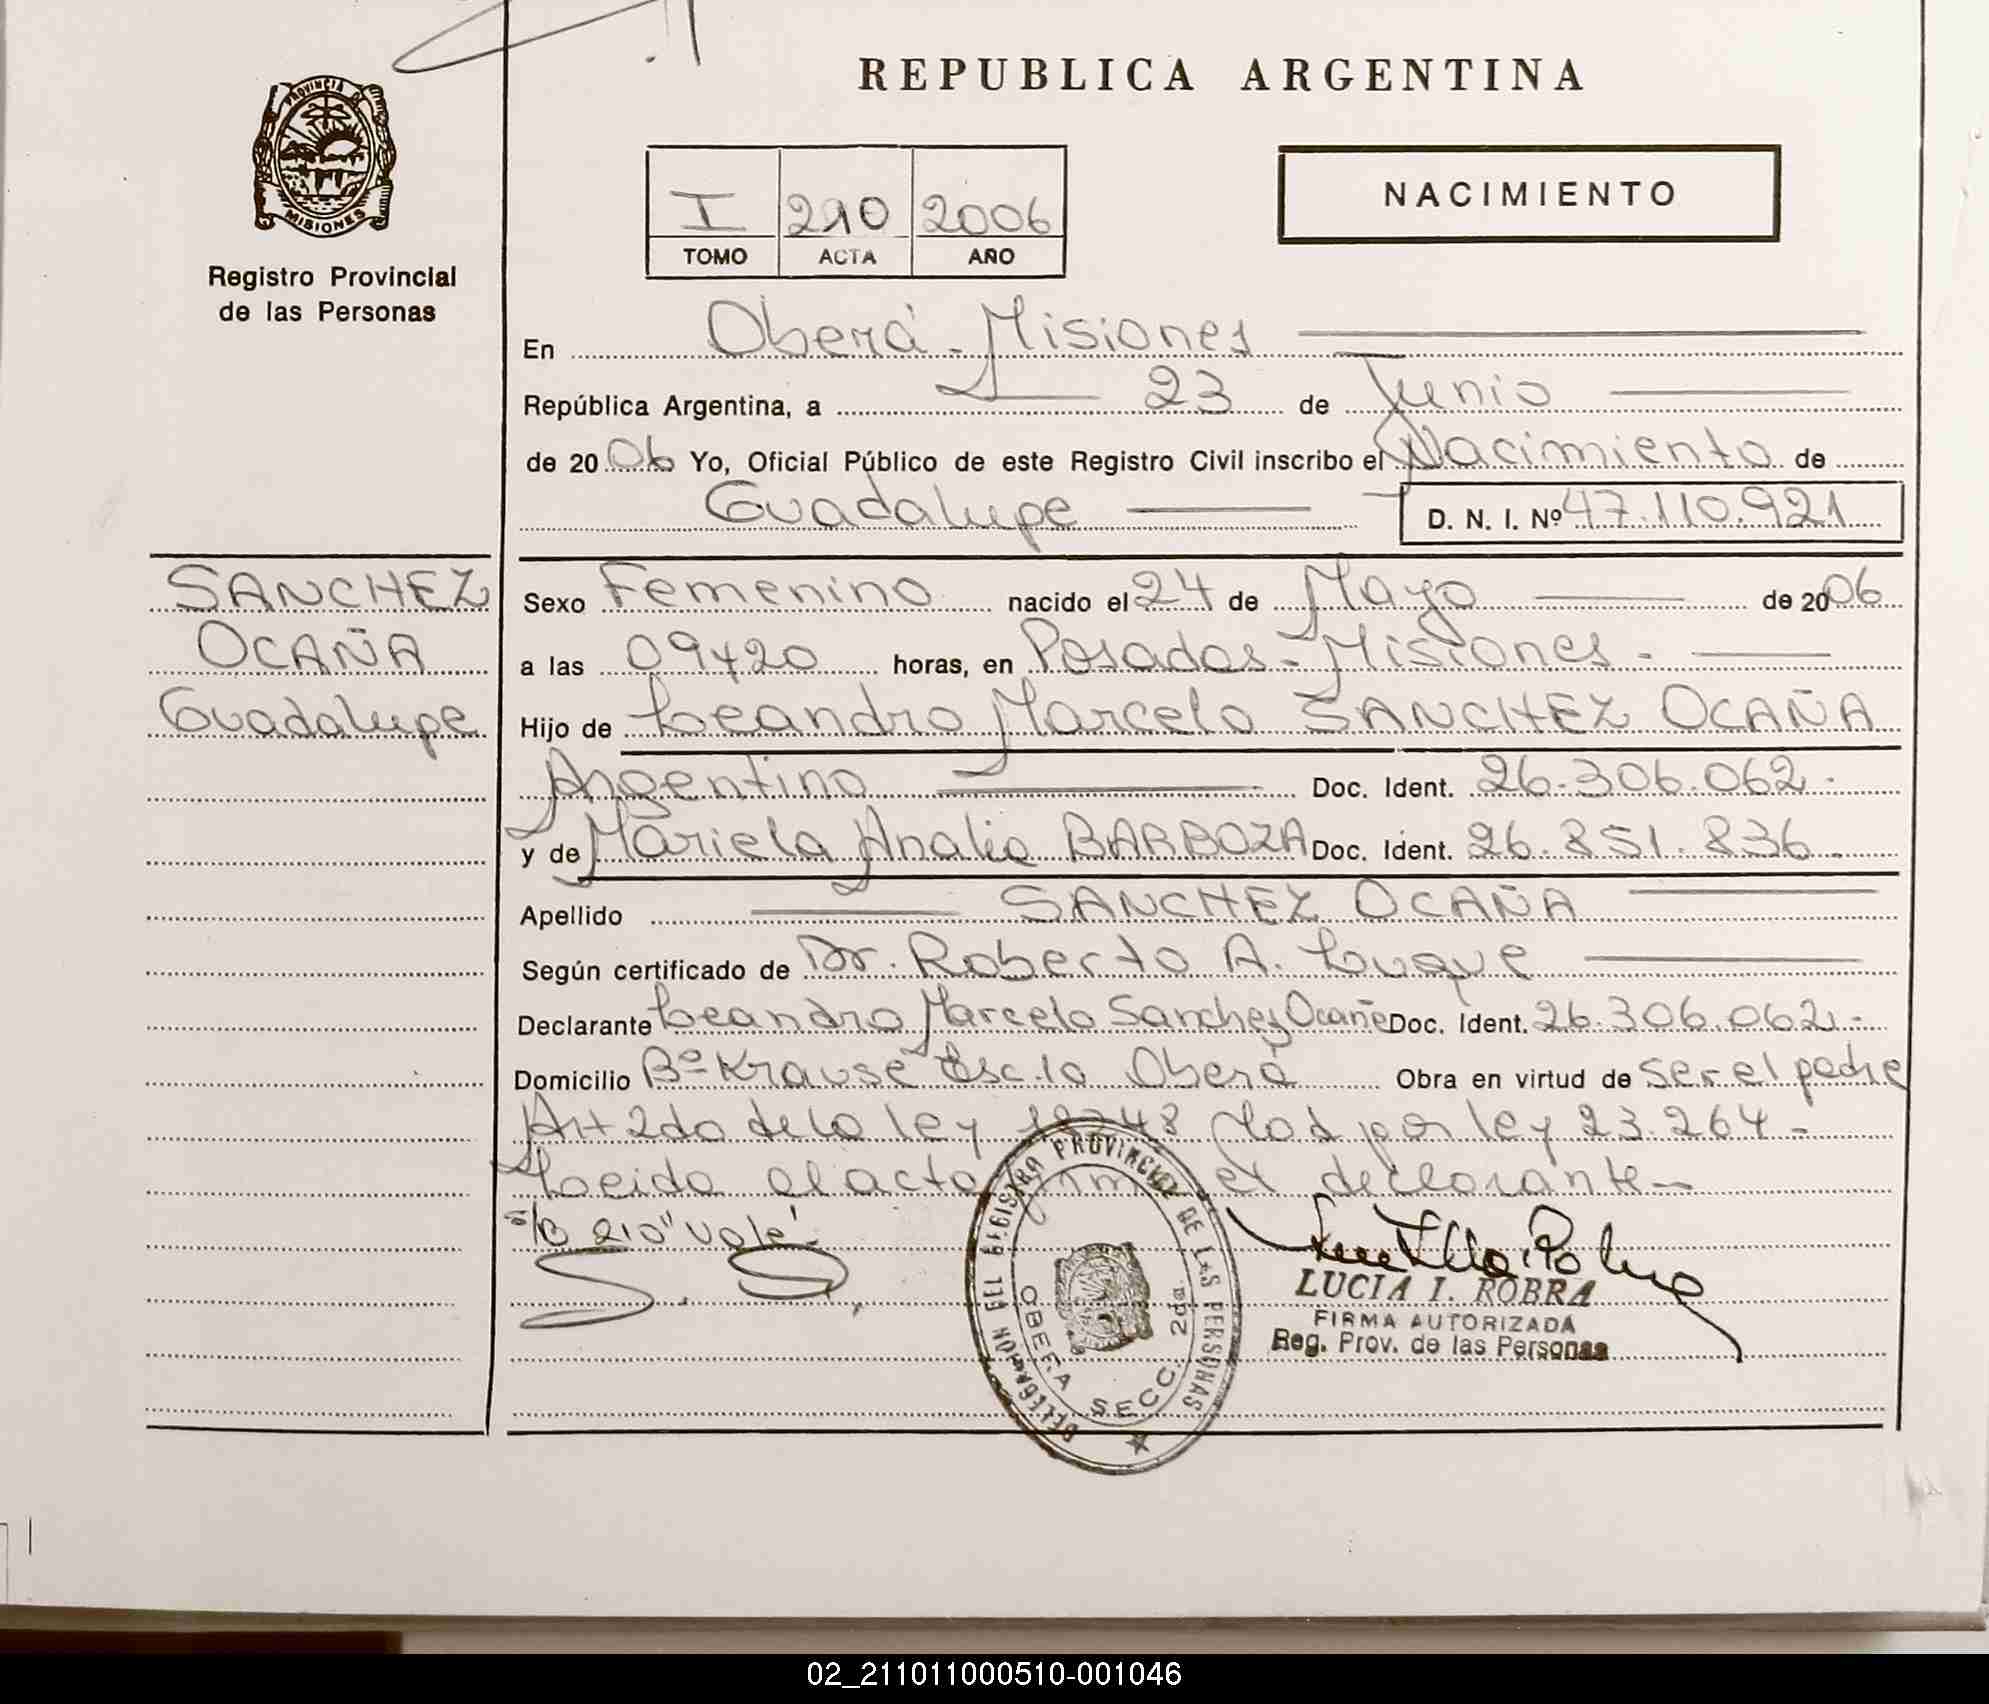 REPUBLICA ARGENTINA
PROVINCIA DE
MISIONES
Registro Provincial
de las Personas
I 210 2006
TOMO ACTA AÑO
NACIMIENTO
En Oberá - Misiones
República Argentina, a 23 de Junio
de 2006 Yo, Oficial Público de este Registro Civil inscribo el Nacimiento de
Guadalupe D. N. I. Nº 47.110.921
SANCHEZ
OCAÑA
Guadalupe
Sexo Femenino nacido el 24 de Mayo de 2006
a las 09y20 horas, en Posadas - Misiones.
Hijo de Leandro Marcelo SANCHEZ OCAÑA
Argentino Doc. Ident. 26.306.062.
y de Mariela Analia BARBOZA Doc. Ident. 26.851.836.
Apellido SANCHEZ OCAÑA
Según certificado de Dr. Roberto A. Luque
Declarante Leandro Marcelo Sanchez Ocaña Doc. Ident. 26.306.062.-
Domicilio Bº Krause Esc. 10 Oberá Obra en virtud de ser el padre
Art 2do de la ley Mod por ley 23.264 -
Leida el acta el declarante -
s/B 210 "Vale".
REGISTRO PROVINCIAL DE LAS PERSONAS
OBERA SECC. 2da.
LUCIA I. ROBRA
FIRMA AUTORIZADA
Reg. Prov. de las Personas
02_211011000510-001046